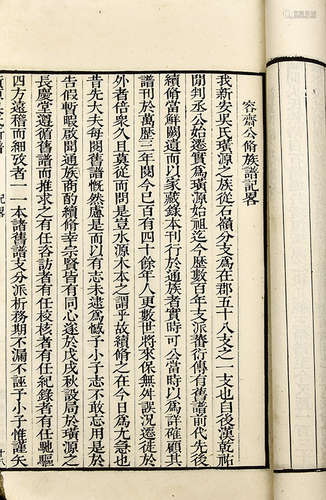 容齋公脩族譜記畧
我新安吳氏璜源之族從石嶺分支為在郡五十八支之一支也自後漢乾祐
間判丞公始遷實為璜源始祖迄今歷數百年支派蕃衍傳有舊譜前代先後
續脩當鮮闕遺而以家藏錄本刊行於通族者實時可公當時以為詳確顧其
譜刊於萬歷三年閱今已百有四十餘年人更數世將來保無舛誤況遷徙於
外者倍衆久且莫從而問是豈水源木本之謂乎故續脩之在今日為尤急也
昔先大夫每閱舊譜慨然慮是而以有志未逮為憾子小子志不敢忘用是於
告假暫暇啟聞通族商酌續脩幸宗賢皆有同心遂於戊戌秋設局於璜源之
長慶堂遵循舊譜而推求之有任各訪者有任校核者有任紀錄者有任馳驅
四方遠稽而細攷者一一本諸舊譜支分派析務期不漏不誣子小子惟謹矣